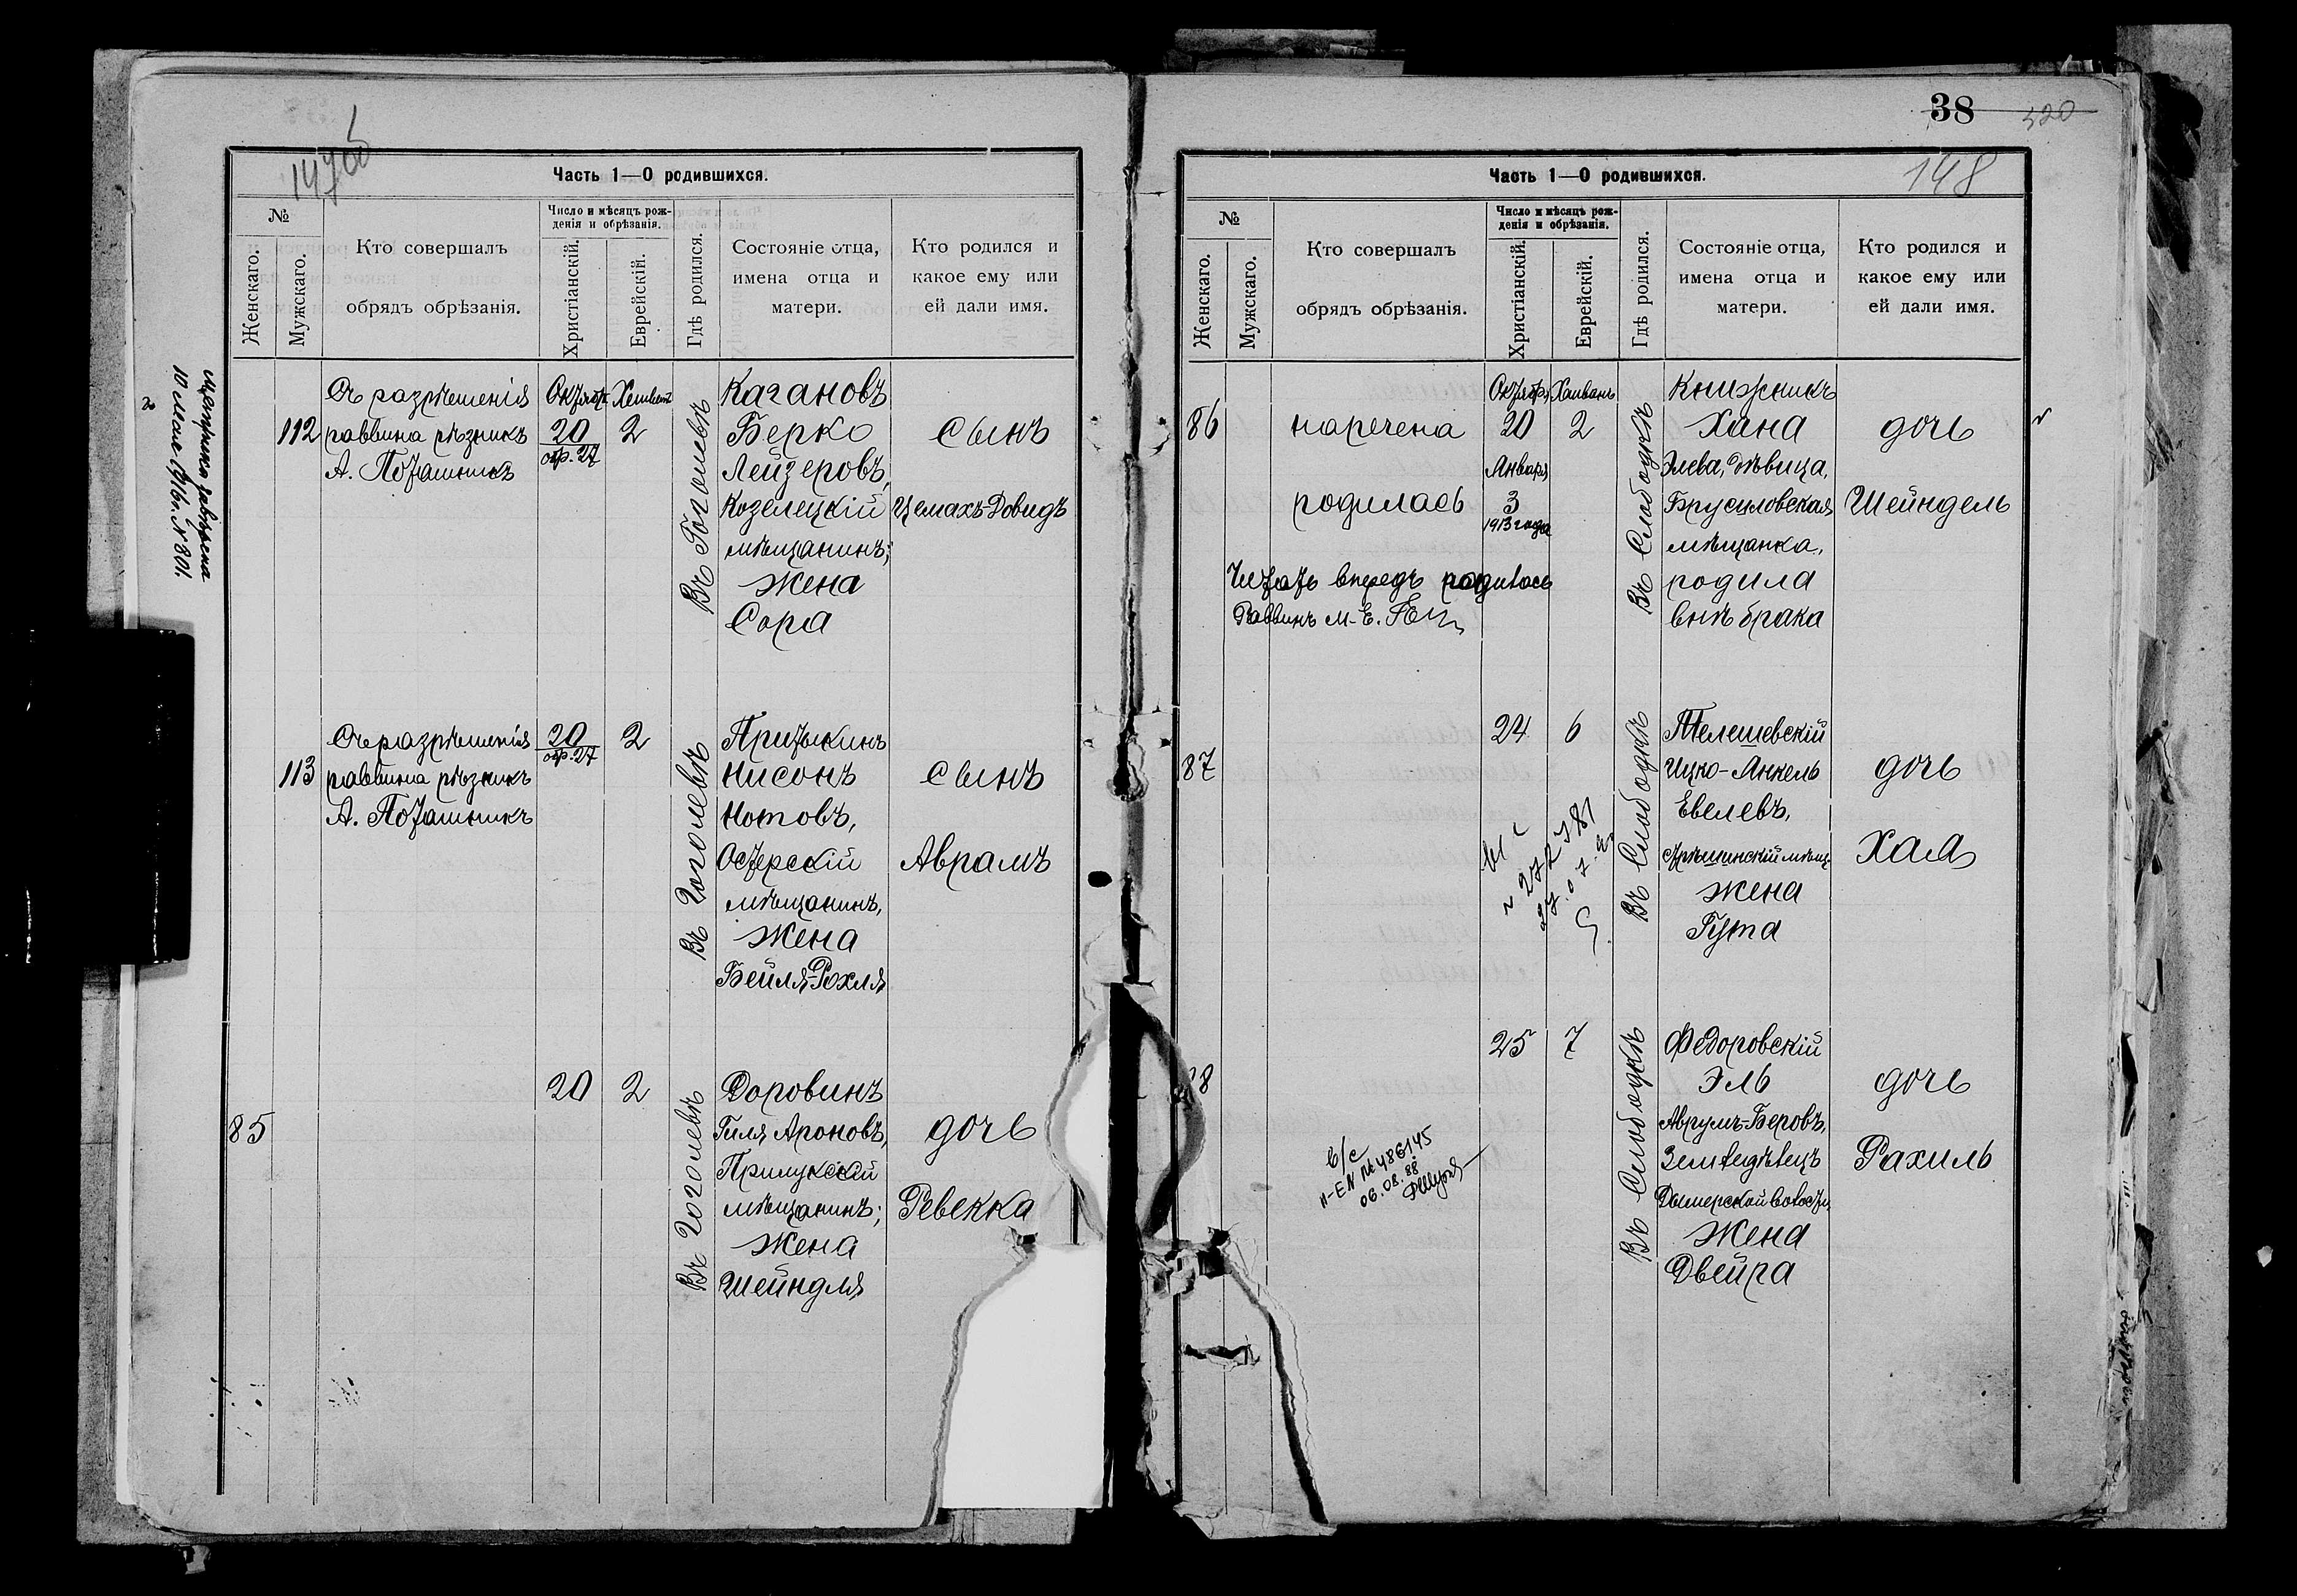 147об
Часть 1—О родившихся.
№
Женскаго.
Мужскаго.
Кто совершалъ
обрядъ обрѣзанія.
Число и мѣсяцъ рож-
денія и обрѣзанія.
Христіанскій.
Еврейскій.
Гдѣ родился.
Состояніе отца,
имена отца и
матери.
Кто родился и
какое ему или
ей дали имя.
Метрика завѣрена
10 Мая 1916г. № 801.
112
Съ разрѣшенія
раввина рѣзникъ
А. Поташникъ
Октябр. Хешванъ
20 2
обр. 27
Въ Гоголевѣ
Кагановъ
Берко
Лейзеровъ,
Козелецкій
мѣщанинъ;
жена
Сора
сынъ
Цемахъ-Довидъ
113
Съ разрѣшенія
раввина рѣзникъ
А. Поташникъ
20 2
обр. 27
Въ Гоголевѣ
Притыкинъ
Нисонъ
Нотовъ,
Остерскій
мѣщанинъ,
жена
Бейля-Рохля
сынъ
Аврамъ
85
20 2
Въ Гоголевѣ
Доровинъ
Гиля Ароновъ,
Прилукскій
мѣщанинъ;
жена
Шейндля
дочь
Ревекка
38 320
148
Часть 1—О родившихся.
№
Женскаго.
Мужскаго.
Кто совершалъ
обрядъ обрѣзанія.
Число и мѣсяцъ рож-
денія и обрѣзанія.
Христіанскій.
Еврейскій.
Гдѣ родился.
Состояніе отца,
имена отца и
матери.
Кто родился и
какое ему или
ей дали имя.
86
наречена
родилась
Читать впередъ родилась
Раввинъ М-Е.
Октябр. Хешванъ
20 2
Января
3
1913 года
Въ Слободкѣ
Книжникъ
Хана
Элева, дѣвица,
Брусиловская
мѣщанка,
родила
внѣ брака
дочь
Шейндель
87
24 6
Въ Слободкѣ
Телешевскій
Ицко-Янкель
Евелевъ,
мѣщ.
жена
Гута
дочь
Хая
88
25 7
в/с
II-ЕN № 486145
06.08.88
Въ Слободкѣ
Федоровскій
Эль
Аврумъ-Беровъ,
Земледѣлецъ
Дымерской волости,
жена
Двейра
дочь
Рахиль